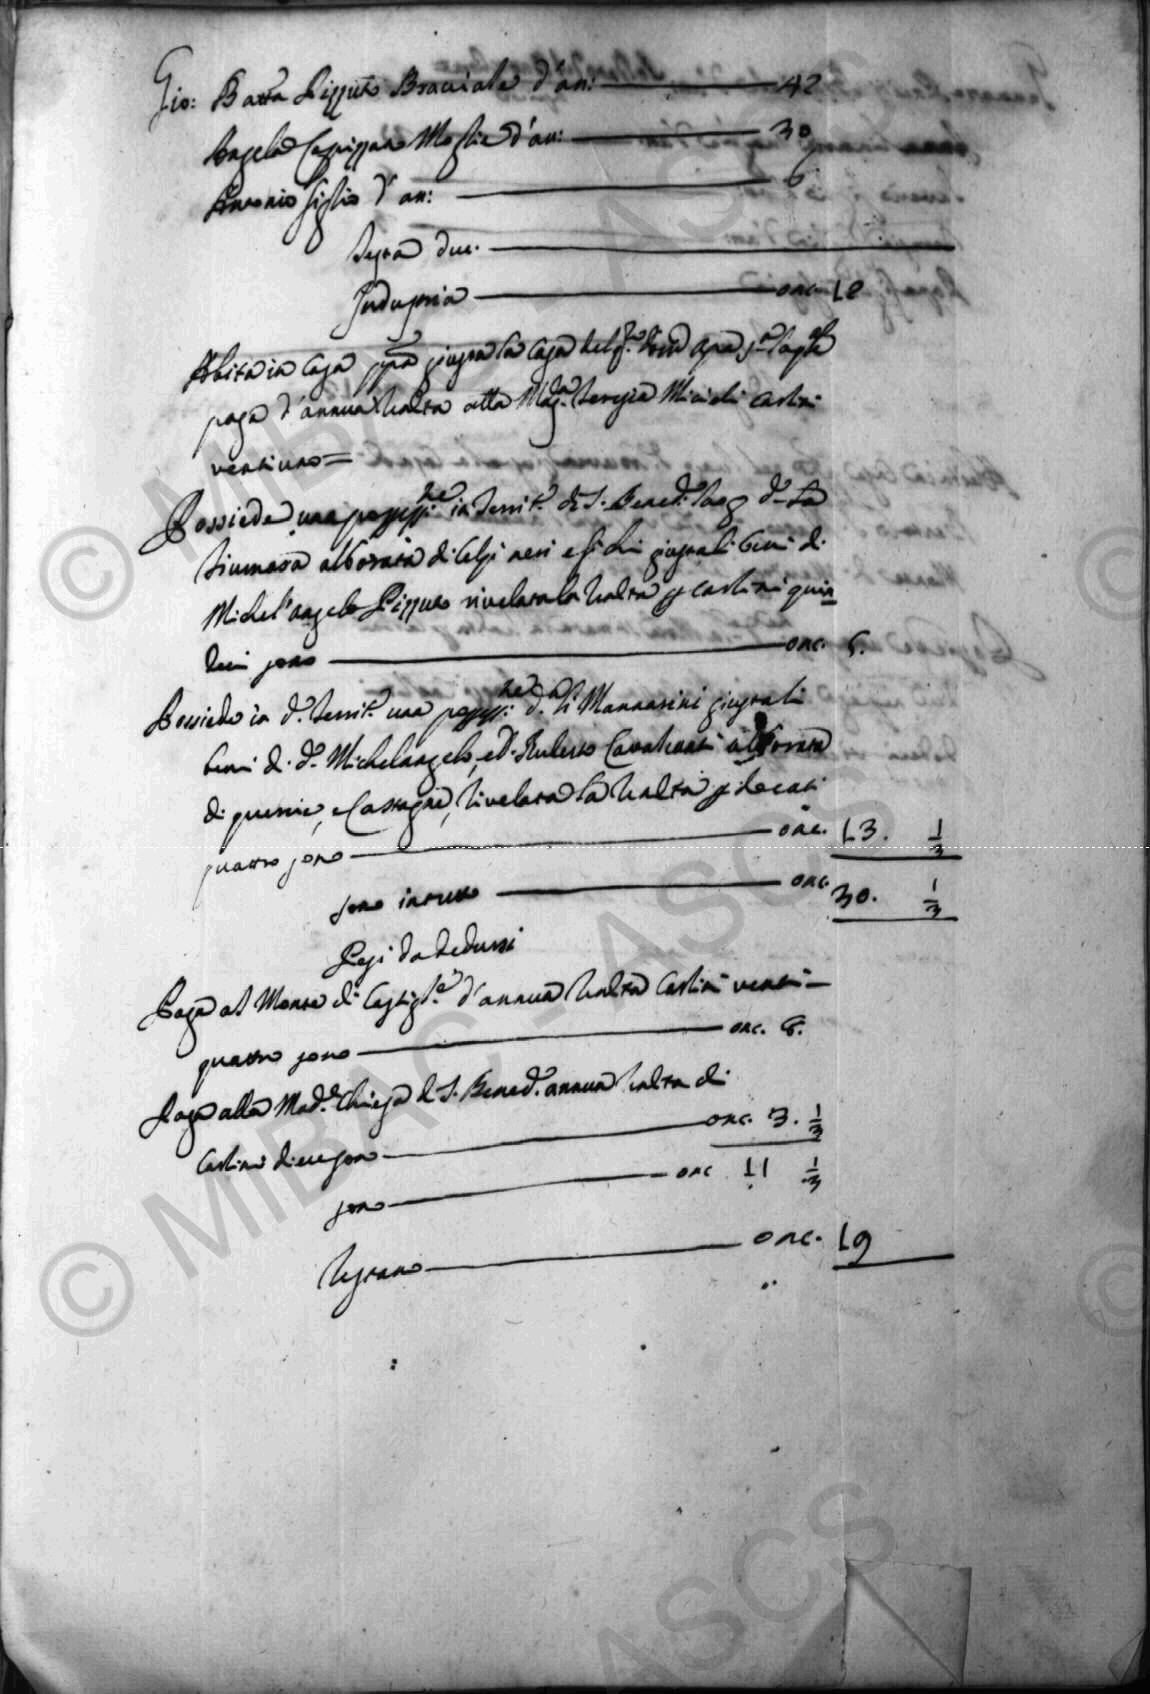 Gio: Batta Pizzuto Bracciale d'an: 42
Angela Moglie d'an: 30
Antonio figlio d'an: 6
Testa duc.
Industria onc. 12
Abita in casa giusta la casa
paga d'annua rendita alla Mag.ca Teresia Micieli carlini
ventiuno =
Possiede una possess.ne in territ.o di S. Bened.o luog. d.o la
fiumara alborata di celsi neri e fichi giusta li beni di
Michel'angelo Pizzuto rivelata la rendita p carlini quin
deci sono onc. 5.
Possiede in d.o territ.o una possess.ne d.a li Mannarini giusta li
beni di d.o Michelangelo, e d. Ruberto Cavalcanti alborata
di quercie, e Castagne, rivelata la rendita p docati
quattro sono onc. 13. 1/3
sono in tutto onc. 30. 1/3
Pesi da dedursi
Paga al Monte di Castigl.e d'annua rendita Carlini venti
quattro sono onc. 8.
Paga alla Mad.e Chiesa di S. Bened.o annua rendita di
Carlini diece sono onc. 3. 1/3
sono onc 11 1/3
Restano onc. 19
© MIBAC - ASCS
© MIBAC - ASCS
© MIBAC - ASCS
ASCS